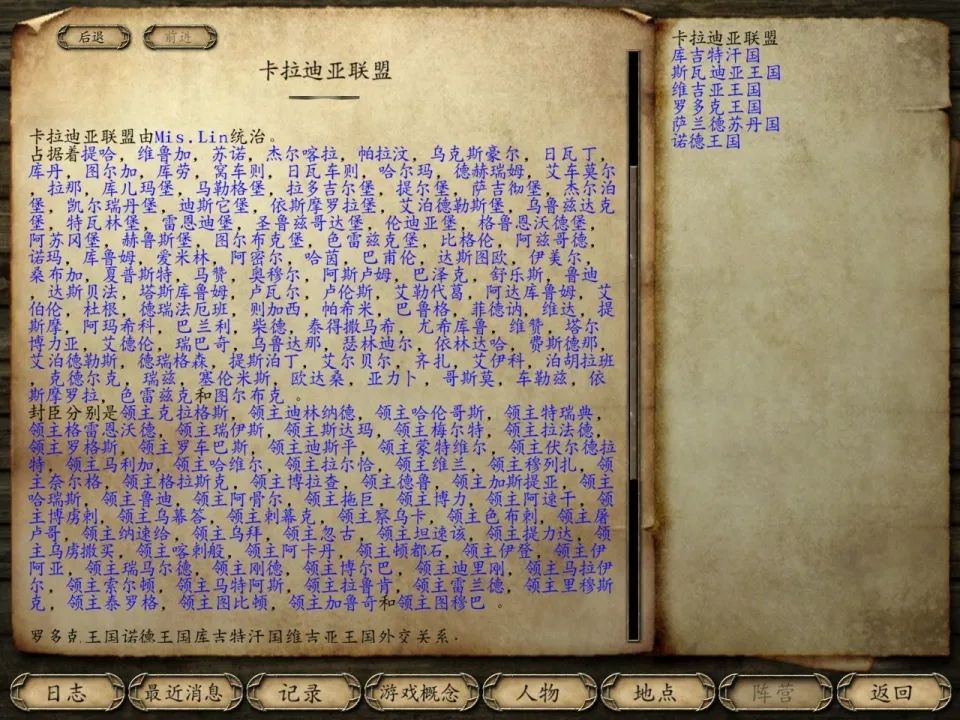 后退
前进
卡拉迪亚联盟
卡拉迪亚联盟由Mis.Lin统治。
占据着提哈，维鲁加，苏诺，杰尔喀拉，帕拉汶，乌克斯豪尔，日瓦丁，
库丹，图尔加，库劳，窝车则，日瓦车则，哈尔玛，德赫瑞姆，艾车莫尔
，拉那，库儿玛堡，马勒格堡，拉多吉尔堡，提尔堡，萨吉彻堡，杰尔泊
堡，凯尔瑞丹堡，迪斯它堡，依斯摩罗拉堡，艾泊德勒斯堡，乌鲁兹达克
堡，特瓦林堡，雷恩迪堡，圣鲁兹哥达堡，伦迪亚堡，格鲁恩沃德堡，
阿苏冈堡，赫鲁斯堡，图尔布克堡，色雷兹克堡，比格伦，阿兹哥德，
诺玛，库鲁姆，爱米林，阿密尔，哈茵，巴甫伦，达斯图欧，伊美尔，
桑布加，夏普斯特，马赞，奥穆尔，阿斯卢姆，巴泽克，舒乐斯，鲁迪
，达斯贝法，塔斯库鲁姆，卢瓦尔，卢伦斯，艾勒代葛，阿达库鲁姆，艾
伯伦，杜根，德瑞法厄班，则加西，帕希米，巴鲁格，菲德讷，维达，提
斯摩，阿玛希科，巴兰利，柴德，泰得撒马希，尤希库鲁，维赞，塔尔
博力亚，艾德伦，瑞巴奇，乌鲁达那，瑟林迪尔，依林达哈，费斯德那，
艾泊德勒斯，德瑞格森，提斯泊丁，艾尔贝尔，齐扎，艾伊科，泊胡拉班
，克德尔克，瑞兹，塞伦米斯，欧达桑，亚力卜，哥斯莫，车勒兹，依
斯摩罗拉，色雷兹克和图尔布克 。
封臣分别是领主克拉格斯，领主迪林纳德，领主哈伦哥斯，领主特瑞典，
领主格雷恩沃德，领主瑞伊斯，领主斯达玛，领主梅尔特，领主拉法德，
领主罗格斯，领主罗车巴斯，领主迪斯平，领主蒙特维尔，领主伏尔德拉
特，领主马利加，领主哈维尔，领主拉尔恰，领主维兰，领主穆列扎，领
主奈尔格，领主格拉斯克，领主博拉查，领主德鲁，领主加斯提亚，领主
哈瑞斯，领主鲁迪，领主阿骨尔，领主拖巨，领主博力，领主阿速干，领
主博虏剌，领主乌幕答，领主剌幕克，领主察乌卡，领主色布刺，领主屠
卢哥，领主纳速给，领主乌拜，领主忽古，领主坦速该，领主提力达，领
主乌虏撒买，领主喀刺般，领主阿卡丹，领主顿都石，领主伊登，领主伊
阿亚，领主瑞马尔德，领主刚德，领主博尔巴，领主迪里刚，领主马拉伊
尔，领主索尔顿，领主马特阿斯，领主拉鲁肯，领主雷兰德，领主里穆斯
克，领主泰罗格，领主图比顿，领主加鲁奇和领主图穆巴 。
罗多克王国诺德王国库吉特汗国维吉亚王国外交关系.
卡拉迪亚联盟
库吉特汗国
斯瓦迪亚王国
维吉亚王国
罗多克王国
萨兰德苏丹国
诺德王国
日志
最近消息
记录
游戏概念
人物
地点
阵营
返回